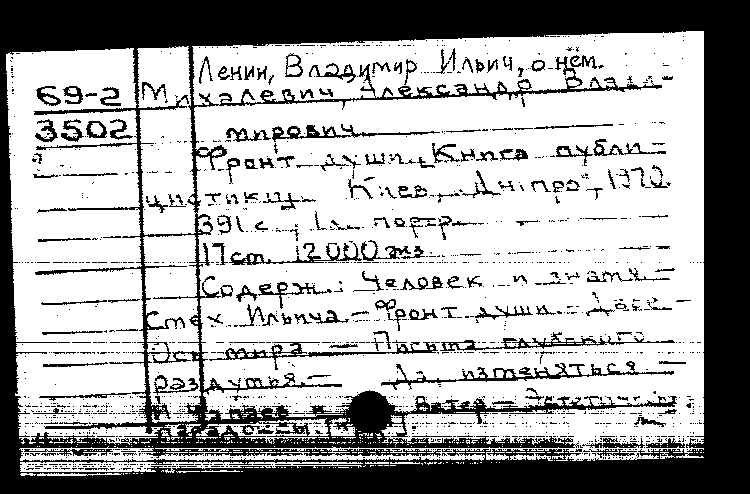 Ленин, Владимир Ильич, о нём.
69-2 Михалевич, Александр Влади-
3502 мирович.
Фронт души. Книга публи-
цистики. Киев, "Дніпро", 1970.
391 с., 1 л. портр.
17 см. 12000 экз.
Содерж.: Человек и знамя. -
Смех Ильича. - Фронт души. -
Ось мира. - Письма глубокого
раздумья. - Да, изменяться -
И Чапаев и Ветер -
парадоксы.